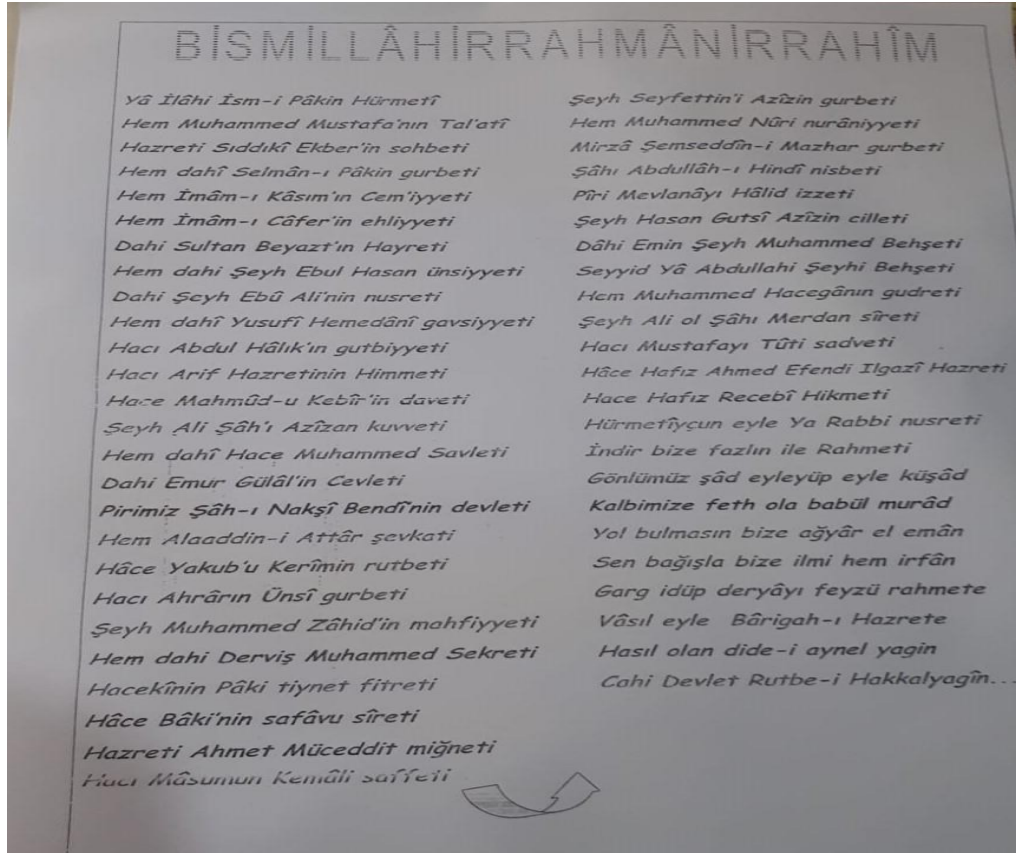 BİSMİLLÂHİRRAHMÂNİRRAHÎM
Yâ İlâhi İsm-i Pâkin Hürmetî
Hem Muhammed Mustafa'nın Tal'atî
Hazreti Sıddıkî Ekber'in sohbeti
Hem dahî Selmân-ı Pâkin gurbeti
Hem İmâm-ı Kâsım'ın Cem'iyyeti
Hem İmâm-ı Câfer'in ehliyyeti
Dahi Sultan Beyazt'ın Hayreti
Hem dahi Şeyh Ebul Hasan ünsiyyeti
Dahi Şeyh Ebû Ali'nin nusreti
Hem dahî Yusufî Hemedânî gavsiyyeti
Hacı Abdul Hâlık'ın gutbiyyeti
Hacı Arif Hazretinin Himmeti
Hace Mahmûd-u Kebîr'in daveti
Şeyh Ali Şâh'ı Azîzan kuvveti
Hem dahî Hace Muhammed Savleti
Dahi Emur Gülâl'in Cevleti
Pirimiz Şâh-ı Nakşî Bendî'nin devleti
Hem Alaaddin-i Attâr şevkati
Hâce Yakub'u Kerîmin rutbeti
Hacı Ahrârın Ünsî gurbeti
Şeyh Muhammed Zâhid'in mahfiyyeti
Hem dahi Derviş Muhammed Sekreti
Hacekînin Pâki tiynet fitreti
Hâce Bâki'nin safâvu sîreti
Hazreti Ahmet Müceddit miğneti
Hacı Mâsumun Kemâli saffeti
Şeyh Seyfettin'i Azîzin gurbeti
Hem Muhammed Nûri nurâniyyeti
Mirzâ Şemseddîn-i Mazhar gurbeti
Şâhı Abdullâh-ı Hindî nisbeti
Pîri Mevlanâyı Hâlid izzeti
Şeyh Hasan Gutsî Azîzin cilleti
Dâhi Emin Şeyh Muhammed Behşeti
Seyyid Yâ Abdullahi Şeyhi Behşeti
Hem Muhammed Hacegânın gudreti
Şeyh Ali ol Şâhı Merdan sîreti
Hacı Mustafayı Tûti sadveti
Hâce Hafız Ahmed Efendi Ilgazî Hazreti
Hace Hafız Recebî Hikmeti
Hürmetîyçun eyle Ya Rabbi nusreti
İndir bize fazlın ile Rahmeti
Gönlümüz şâd eyleyüp eyle küşâd
Kalbimize feth ola babül murâd
Yol bulmasın bize ağyâr el emân
Sen bağışla bize ilmi hem irfân
Garg idüp deryâyı feyzü rahmete
Vâsıl eyle Bârigah-ı Hazrete
Hasıl olan dide-i aynel yagin
Cahi Devlet Rutbe-i Hakkalyagîn...